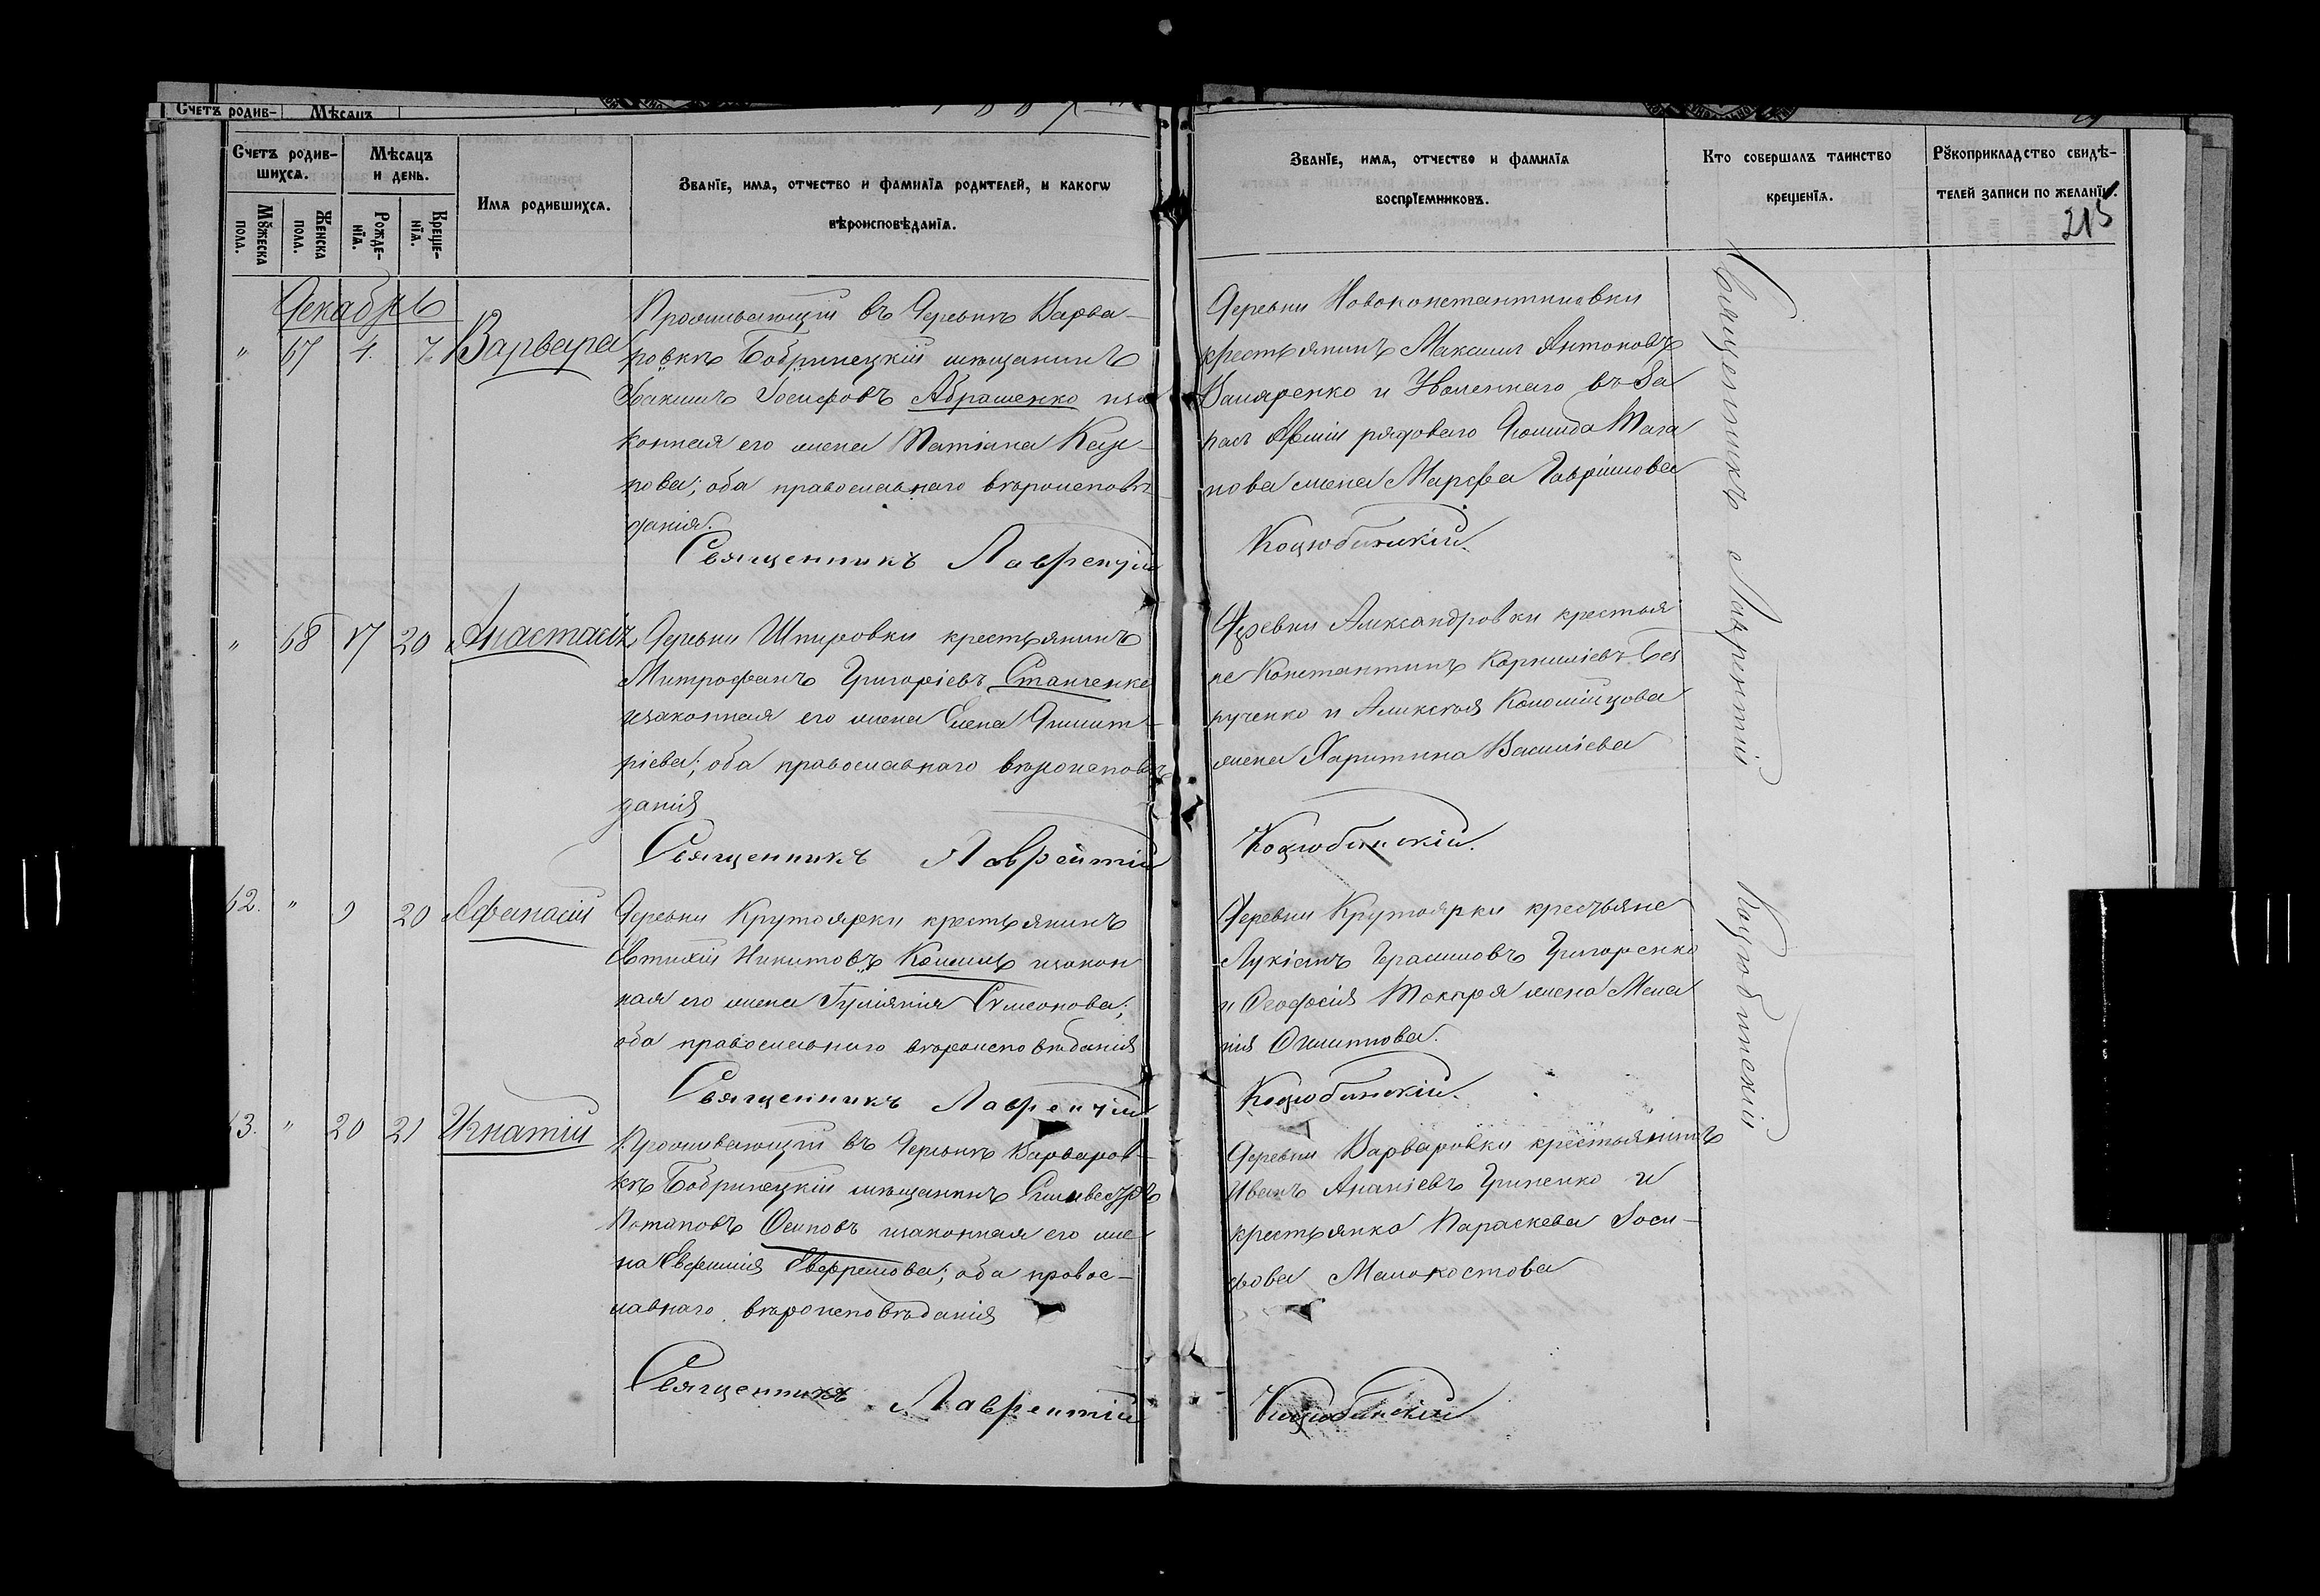 Счетъ родив-
Мѣсяцъ
Счетъ родив-
шихся.
Мѣсяцъ
и день.
Мꙋжеска
пола.
Женска
пола.
Рожде-
нїя.
Креще-
нїя.
Имя родившихся.
Званїе, имя, отчество и фамилїя родителей, и какогѡ
вѣроисповѣданїя.
Званїе, имя, отчество и фамилїя
воспрїемниковъ.
Кто совершалъ таинство
крещенїя.
Рꙋкоприкладство свидѣ-
телей записи по желанїю.
215
Декабрь
" 67 4. 7. Варвара
Проживающій въ Деревнѣ Варва-
ровкѣ Бобринецкій мѣщанинъ
Іоакимъ Іосифовъ Абрашенко иза
конная его жена Татіана Кар-
пова; оба православнаго вѣроисповѣ-
данія.
Священникъ Лаврентій
Деревни Новоконстантиновки
крестьянинъ Максимъ Антоновъ
и Уволеннаго въ За
пасъ Арміи рядоваго
нова жена Марфа Гавріилова
Коцюбинскій.
" 68 17 20 Анастасія
Деревни Шпировки крестьянинъ
Митрофанъ Григоріевъ Станченко
изаконная его жена Елена Димит-
ріева; оба православнаго вѣроисповѣ-
данія
Священникъ Лаврентій
Деревни Александровки крестья
не Константинъ Корниліевъ Без
рученко и Алексѣя Коломійцова
жена Харитина Василіева
Коцюбинскій.
62. " 9 20 Афанасій
Деревни Крутоярки крестьянинъ
Евтихій Никитовъ изакон
ная его жена Іуліянія Симеонова;
оба православнаго вѣроисповѣданія
Священникъ Лаврентій
Деревни Крутоярки крестьяне
Лукіанъ Герасимовъ Григоренко
и Феодосія Токаря жена Мела
нія
Коцюбинскій.
63. " 20 21 Игнатій
Проживающій въ Деревнѣ Варваров-
кѣ Бобринецкій мѣщанинъ Сильвестръ
Потаповъ Осиповъ изаконная его же
на Евфимія Евфремова; оба правос-
лавнаго вѣроисповѣданія
Священникъ Лаврентій
Деревни Варваровки крестьянинъ
Иванъ Ананіевъ Гриненко и
крестьянка Параскева Іоси-
фова Малохостова
Коцюбинскій
Священникъ Лаврентій Коцюбинскій